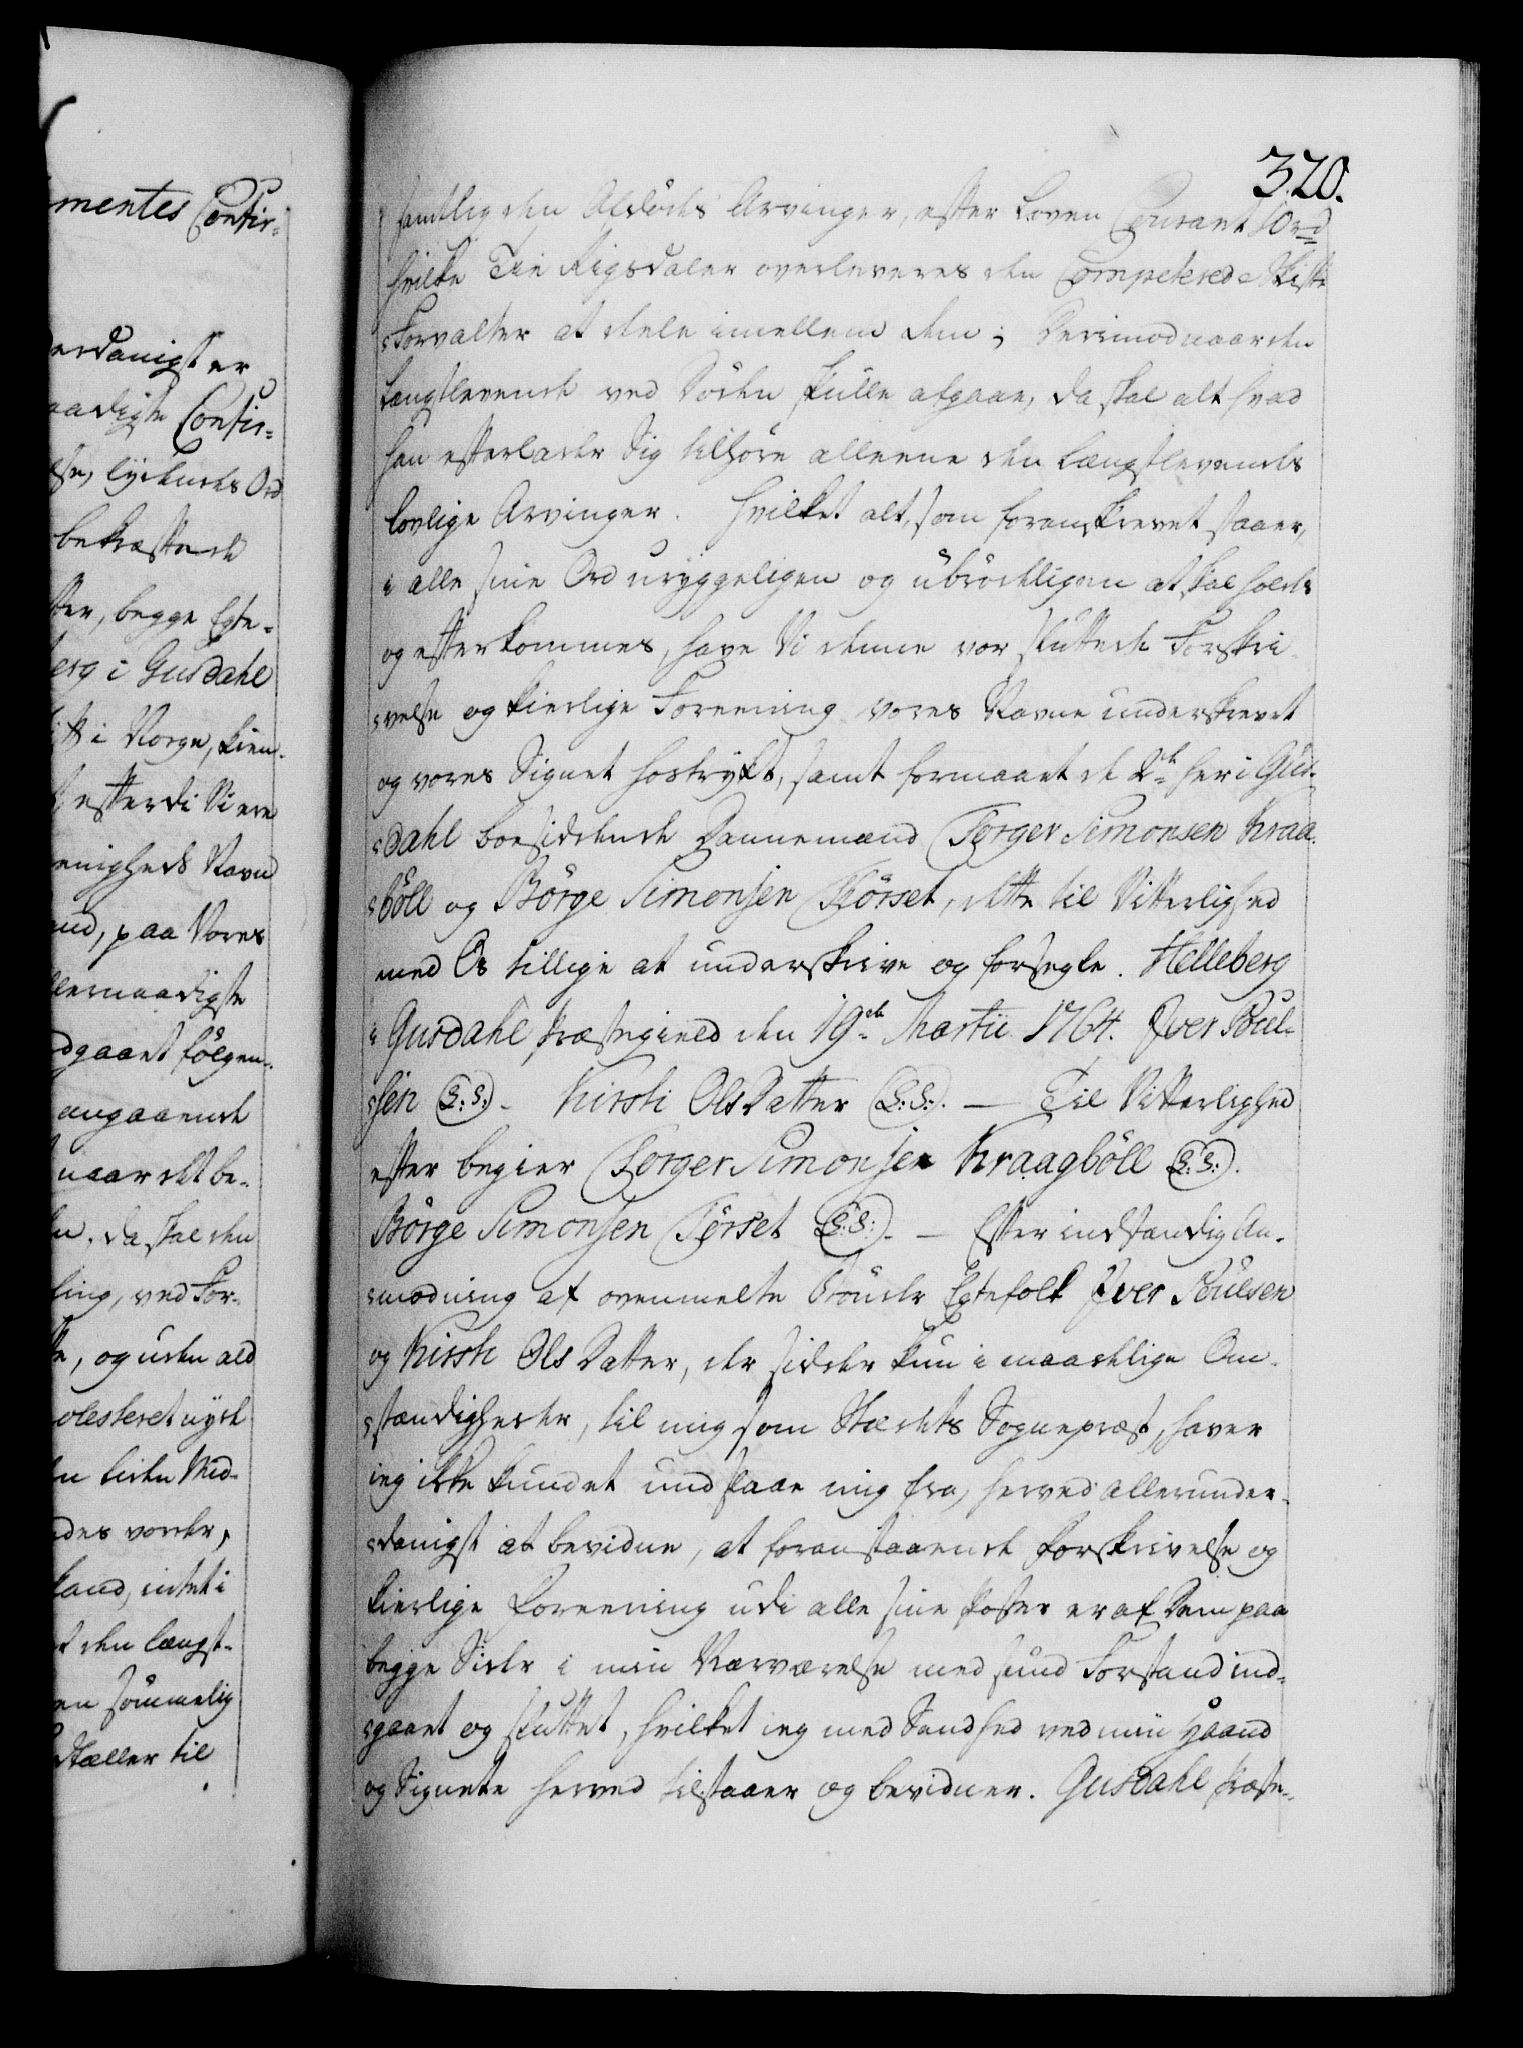 mentes Confir-
erdanigst er
aadigste Confir-
lse, lydendes Ord
bekræftede
ter, begge Egte-
berg i Gusdahl
ft i Norge, kien-
efterdi Vi ere
enigheds Navn
and, paa Vores
llernaadigste
dgaaet følgen-
angaaende
naar det be-
n, da skal den
ling, ved For-
te, og uden ald
olesteret nyde
n liden Mid-
des vorder,
land, intet i
t den længst-
en sømmelig
Stæller til
320.
samtlig den Afdødes Arvinger, efter Loven Courant 10rd
hvilke Tie Rigsdaler overleveres den Competered Skifte
Forvalter at dele imellem dem; Derimod naar den
Længstlevende ved Døden skulle afgaae, da skal alt hvad
han efterlader Sig tilhøre alleene den Længstlevendes
lovlige Arvinger. Hvilket alt, som foranskrevet staaer,
i alle sine Ord uryggeligen og ubrødeligen at skal holdes
og efterkommes, have Vi denne vor sluttede Forskri-
velse og kierlige Foreening vores Navne underskrevet
og vores Signet hostrykt, samt formaaet de 2de her i Gus-
dahl boesiddende Dannemænd Torger Simonsen Kraa-
böll og Börge Simonsen Törset, dette til Vitterlighed
med Os tillige at underskrive og forsegle. Helleberg
i Gusdahl Præstegield den 19de Martii 1764. Iver Poul-
sen (L:S:). Kirsti OlsDatter (L:S:). — Til Vitterlighed
efter begier Torger Simonsen Kraagböll (L:S:).
Börge Simonsen Törset (L:S:). — Efter indstændig An-
modning af ovenmelte Trouede Egtefolk Iver Poulsen
og Kirsti Ols Datter, der sidder kun i maadelige Om-
stændigheder, til mig som Stedets Sognepræst, haver
ieg ikke kundet undslaae mig fra, herved allerunder-
danigst at bevidne, at foranstaaende Forskrivelse og
kierlige Foreening udi alle sine Poster er af Dem paa
begge Sider i min Nærværelse med sund Forstand ind-
gaaet og sluttet, hvilket ieg med Sandhed ved min Haand
og Signete herved tilstaaer og bevidner. Gusdahl Præste-